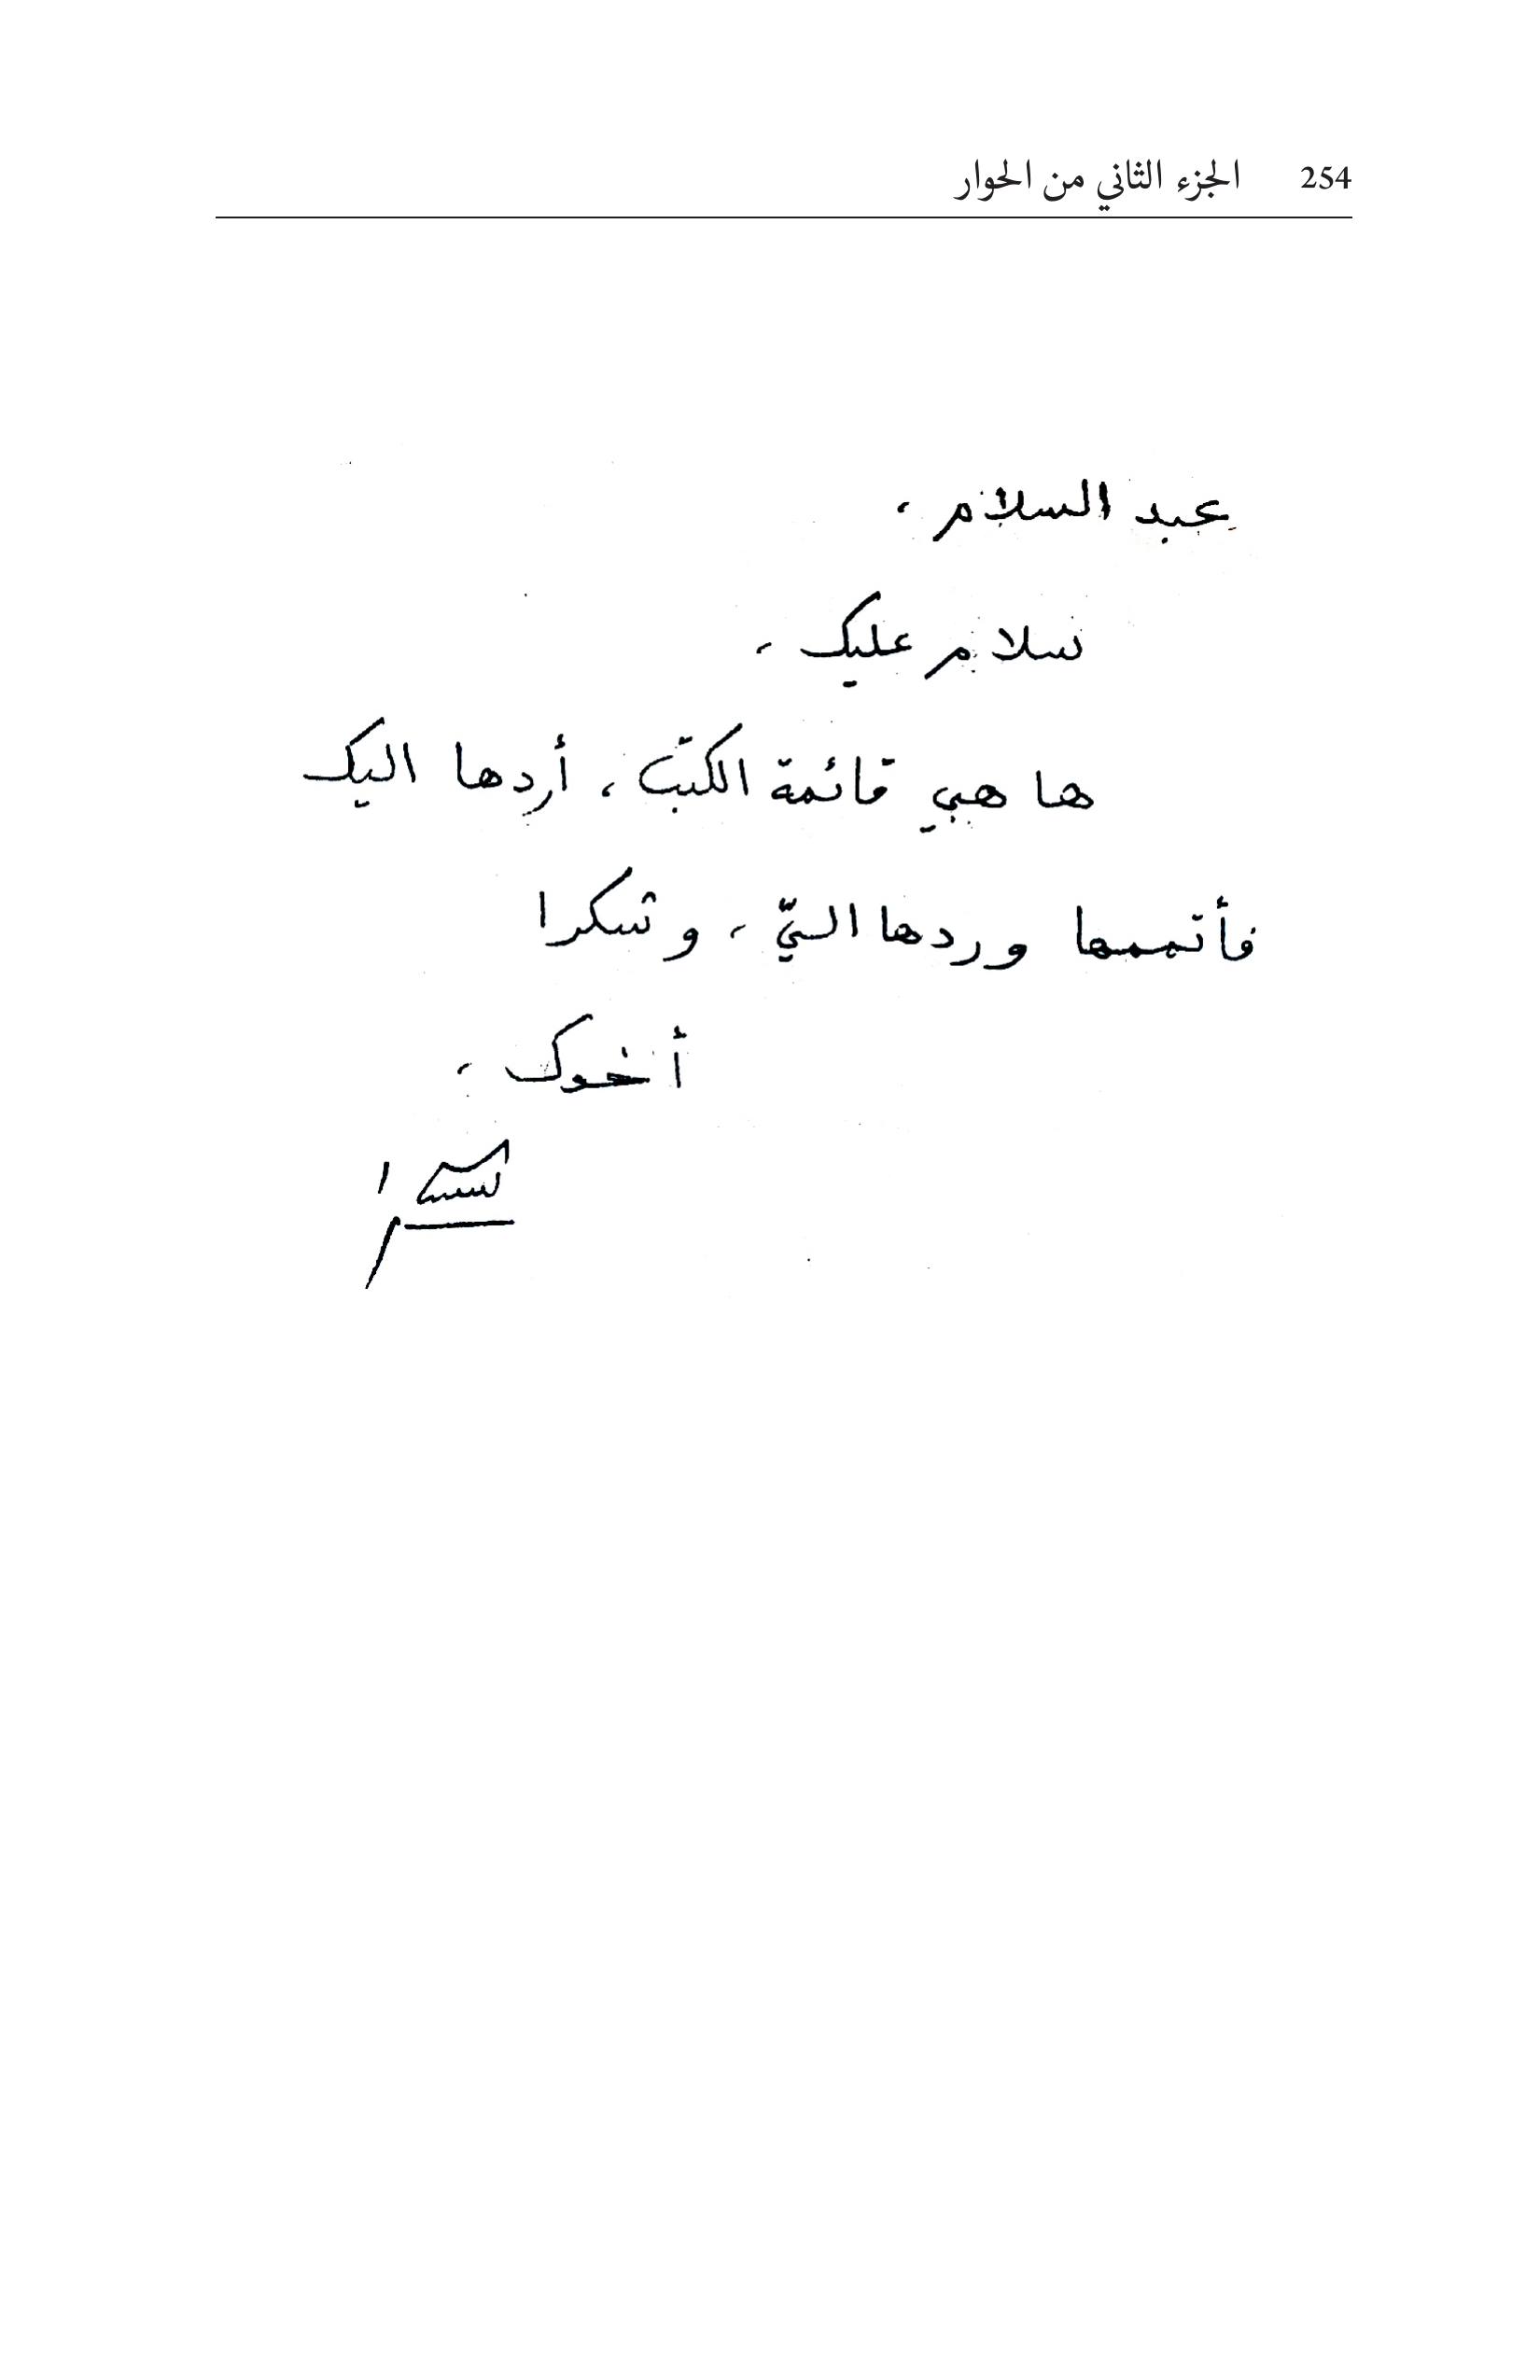 254 الجزء الثاني من الحوار
عبد السلام ،
سلام عليك ،
ها هي قائمة الكتب ، أردها اليك
فأتممها وردها اليّ ، وشكرا
أخوك ،